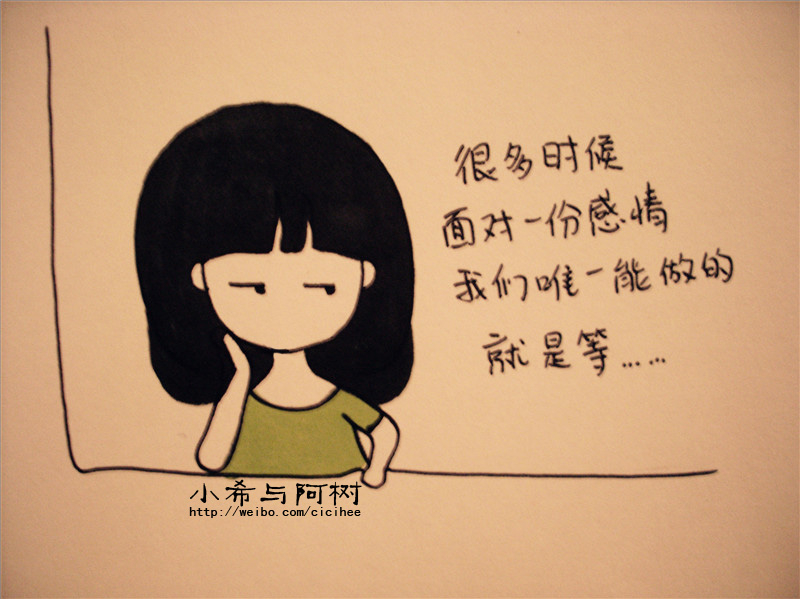 很多时候
面对一份感情
我们唯一能做的
就是等……
小希与阿树
http://weibo.com/cicihee